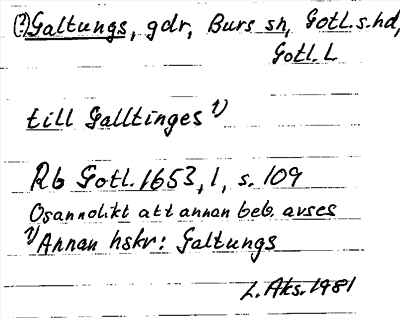 (?) Galtungs, gdr, Burs sn, Gotl. s. hd,
Gotl. L
till Galltinges 1)
Rb Gotl. 1653, 1, s. 109
Osannolikt att annan beb. avses
1) Annan hskr: Galtungs
L. Aks. 1981